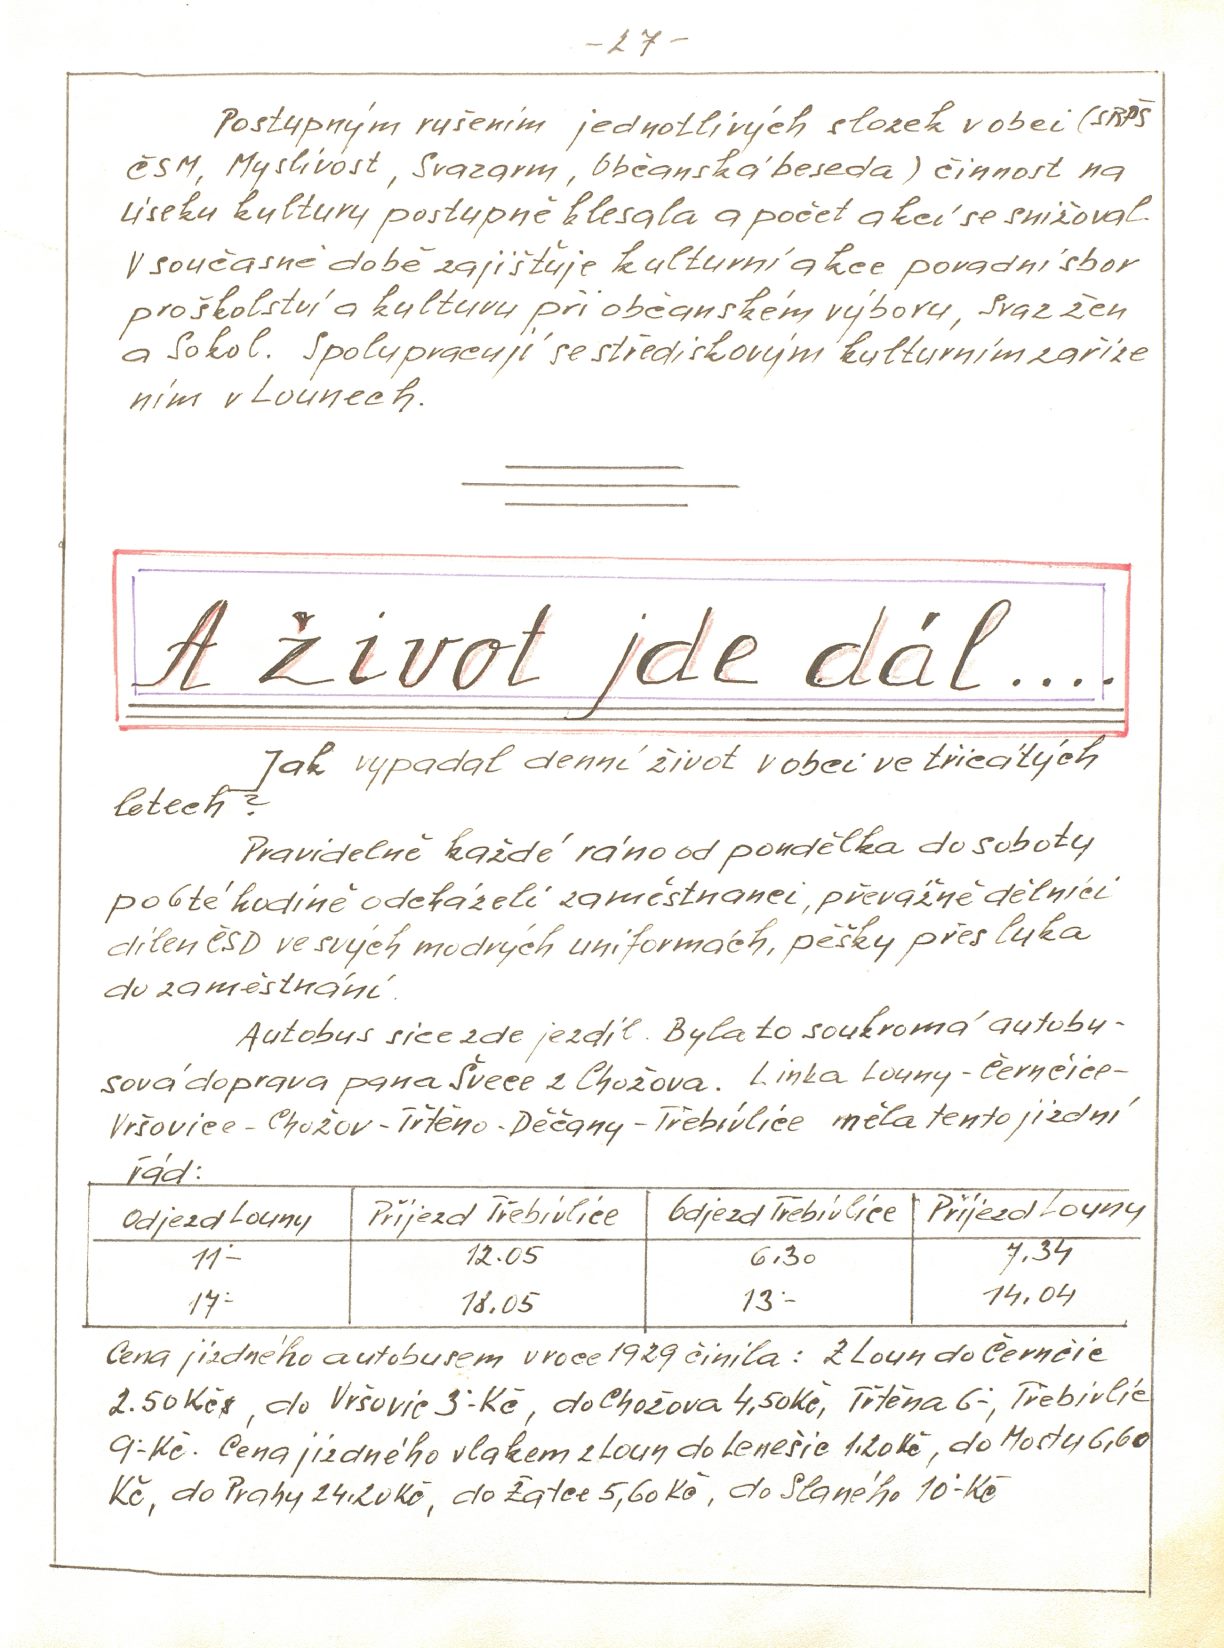 -27-
Postupným rušením jednotlivých složek v obci (SRPŠ
ČSM, Myslivost, Svazarm, Občanská beseda) činnost na
úseku kultury postupně klesala a počet akcí se snižoval.
V současné době zajišťuje kulturní akce poradní sbor
pro školství a kulturu při občanském výboru, Svaz žen
a Sokol. Spolupracují se střediskovým kulturním zaříze
ním v Lounech.
A život jde dál....
Jak vypadal denní život v obci ve třicátých
letech?
Pravidelně každé ráno od pondělka do soboty
po 6té hodině odcházeli zaměstnanci, převážně dělníci
dílen ČSD ve svých modrých uniformách, pěšky přes luka
do zaměstnání.
Autobus sice zde jezdil. Byla to soukromá autobu-
sová doprava pana Švece z Chožova. Linka Louny-Černčice-
Vršovice-Chožov-Třtěno-Děčany-Třebívlice měla tento jízdní
řád:
Odjezd Louny Příjezd Třebívlice Odjezd Třebívlice Příjezd Louny
11.- 12.05 6.30 7.34
17.- 18.05 13.- 14.04
Cena jízdného autobusem v roce 1929 činila: Z Loun do Černčic
2.50 Kčs, do Vršovic 3.-Kč, do Chožova 4,50 Kč, Třtěna 6.-, Třebívlic
9.-Kč. Cena jízdného vlakem z Loun do Lenešic 1.20 Kč, do Mostu 6,60
Kč, do Prahy 24.20 Kč, do Žatce 5,60 Kč, do Slaného 10.-Kč